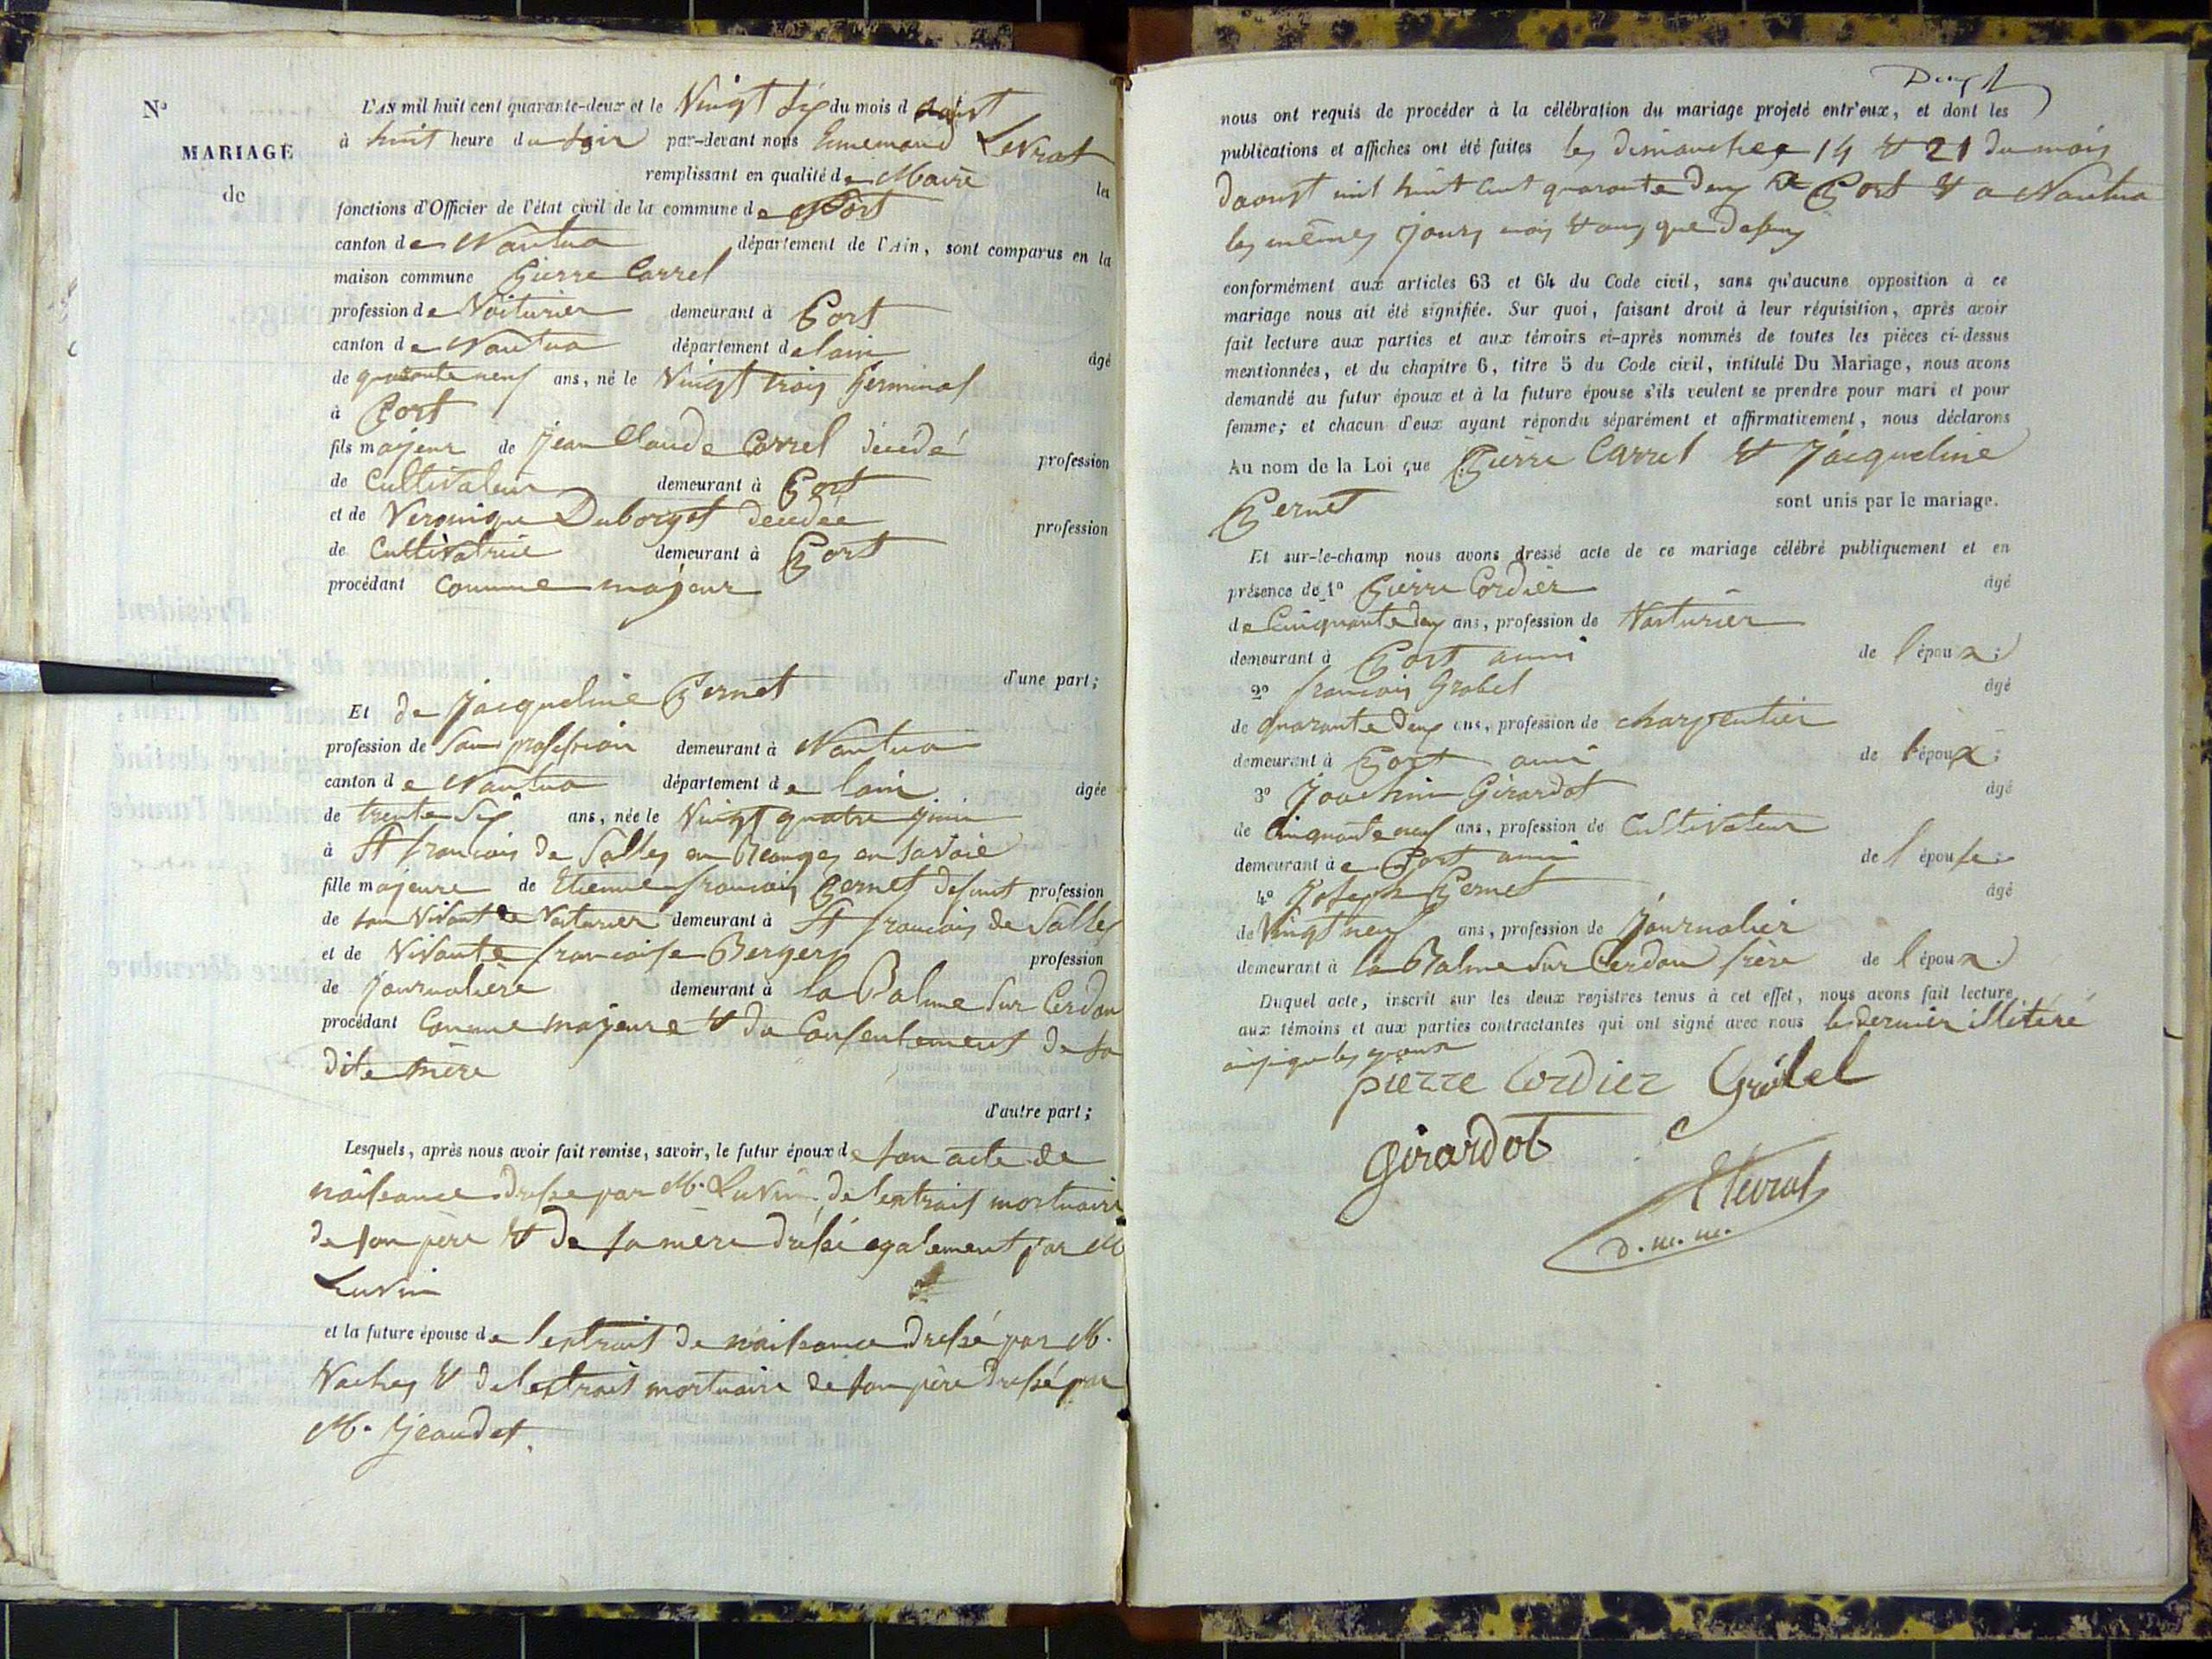 N°
MARIAGE
de
L'AN mil huit cent quarante-deux et le Vingt Six du mois d aoust
à huit heure du Soir par-devant nous Ennemond Levrat
remplissant en qualité de Maire les
fonctions d'Officier de l'état civil de la commune de Port
canton de Nantua département de l'Ain, sont comparus en la
maison commune Pierre Carrel
profession de Voiturier demeurant à Port
canton de Nantua département de lain âgé
de quarante neuf ans, né le Vingt trois Germinal
à Port
fils majeur de Jean Claude Carrel décédé profession
de Cultivateur demeurant à Port
et de Veronique Duborgat décédée profession
de Cultivatrice demeurant à Port
procédant Comme majeur
d'une part;
Et de Jacqueline Pernet
profession de Sans profession demeurant à Nantua
canton de Nantua département de lain âgée
de trente Six ans, née le Vingt quatre Juin
à St francois de Salles en Beauges en Savoie
fille majeure de Etienne francois Pernet defunt profession
de son Vivant de Voiturier demeurant à St francois de Salles
et de Vivante francoise Berger profession
de Journalière demeurant à la Balme Sur Cerdon
procédant Comme majeure & du Consentement de sa
dite mère
d'autre part;
Lesquels, après nous avoir fait remise, savoir, le futur époux de son acte de
naissance dressé par M. Luvin, de lextrait mortuaire
de son père & de sa mère dressé egalement par M
Luvin
et la future épouse de lextrait de naissance dressé par M.
Vachez & de lextrait mortuaire de son père dressé par
M. Jeandet.
Deux
nous ont requis de procéder à la célébration du mariage projeté entr'eux, et dont les
publications et affiches ont été faites les dimanches 14 & 21 du mois
daoust mil huit cent quarante deux à Port & a Nantua
les mêmes jours mois & an que dessus
conformément aux articles 63 et 64 du Code civil, sans qu'aucune opposition à ce
mariage nous ait été signifiée. Sur quoi, faisant droit à leur réquisition, après avoir
fait lecture aux parties et aux témoins ci-après nommés de toutes les pièces ci-dessus
mentionnées, et du chapitre 6, titre 5 du Code civil, intitulé Du Mariage, nous avons
demandé au futur époux et à la future épouse s'ils veulent se prendre pour mari et pour
femme; et chacun d'eux ayant répondu séparément et affirmativement, nous déclarons
Au nom de la Loi que Pierre Carrel & Jacqueline
Pernet sont unis par le mariage.
Et sur-le-champ nous avons dressé acte de ce mariage célébré publiquement et en
présence de 1° Pierre Cordier âgé
de Cinquante deux ans, profession de Voiturier
demeurant à Port ami de l époux;
2° francois Grobel âgé
de quarante deux ans, profession de charpentier
demeurant à Port ami de l'époux;
3° Joachim Girardot âgé
de Cinquante neuf ans, profession de Cultivateur
demeurant à Port ami de l épouse;
4° Joseph Pernet âgé
de Vingt neuf ans, profession de Journalier
demeurant à la Balme Sur Cerdon frère de l époux.
Duquel acte, inscrit sur les deux registres tenus à cet effet, nous avons fait lecture
aux témoins et aux parties contractantes qui ont signé avec nous le dernier illitéré
ainsi que les epoux
pierre Cordier Grobel
Girardot
Levrat